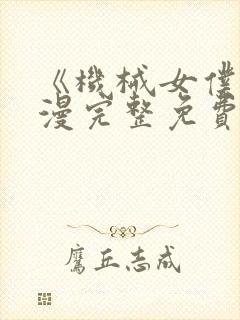 《機械女僕
漫完整免費
鷹丘志成